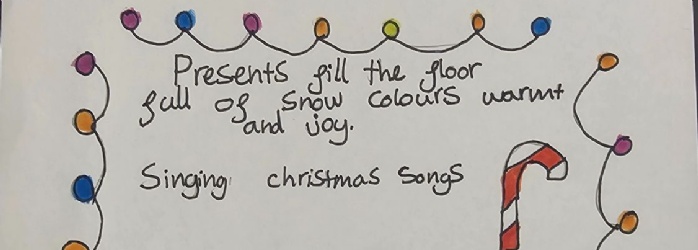 Presents fill the floor
full of snow colours warmt
and joy.
Singing christmas songs